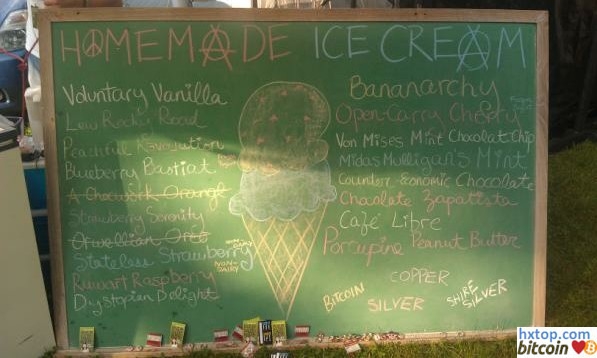 HOMEMADE ICE CREAM
Voluntary Vanilla
Rocker Road
Peaceful Revolution
Blueberry Bastiat
A Chocwork Orange
Strawberry Serenity
Orwellian Oreo
Stateless Strawberry
NON-DAIRY
Ruwart Raspberry
Dystopian Delight
Bananarchy
Open-Carry Cherry
Von Mises Mint Chocolat Chip
Midas Mulligan's Mint
Counter-Economic Chocolate
Chocolate Zapatista
Café Libre
Porcupine Peanut Butter
COPPER
BITCOIN
SILVER
SHIRE SILVER
hxtop.com
bitcoin